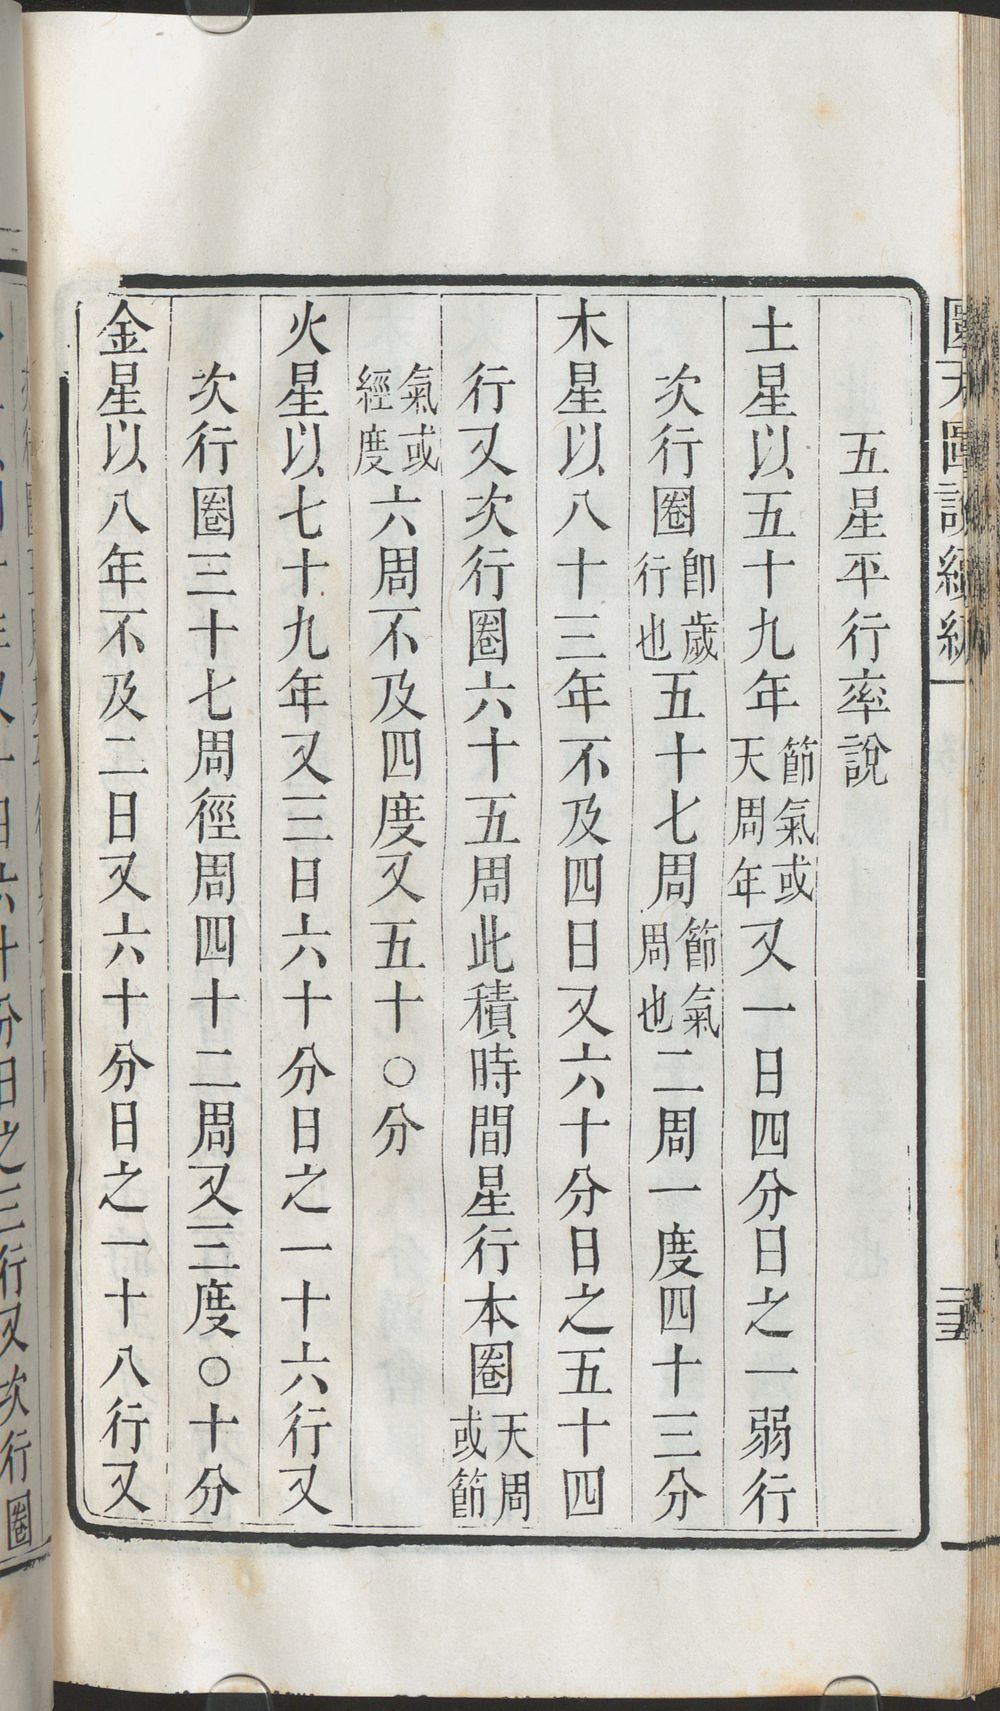 五星平行率說
土星以五十九年節氣或天周年又一日四分日之一弱行
次行圈卽歲行也五十七周節氣周也二周一度四十三分
木星以八十三年不及四日又六十分日之五十四
行又次行圈六十五周此積時間星行本圈天周或節
氣或經度六周不及四度又五十〇分
火星以七十九年又三日六十分日之一十六行又
次行圈三十七周徑周四十二周又三度〇十分
金星以八年不及二日又六十分日之一十八行又
圜天圖說續編
二五